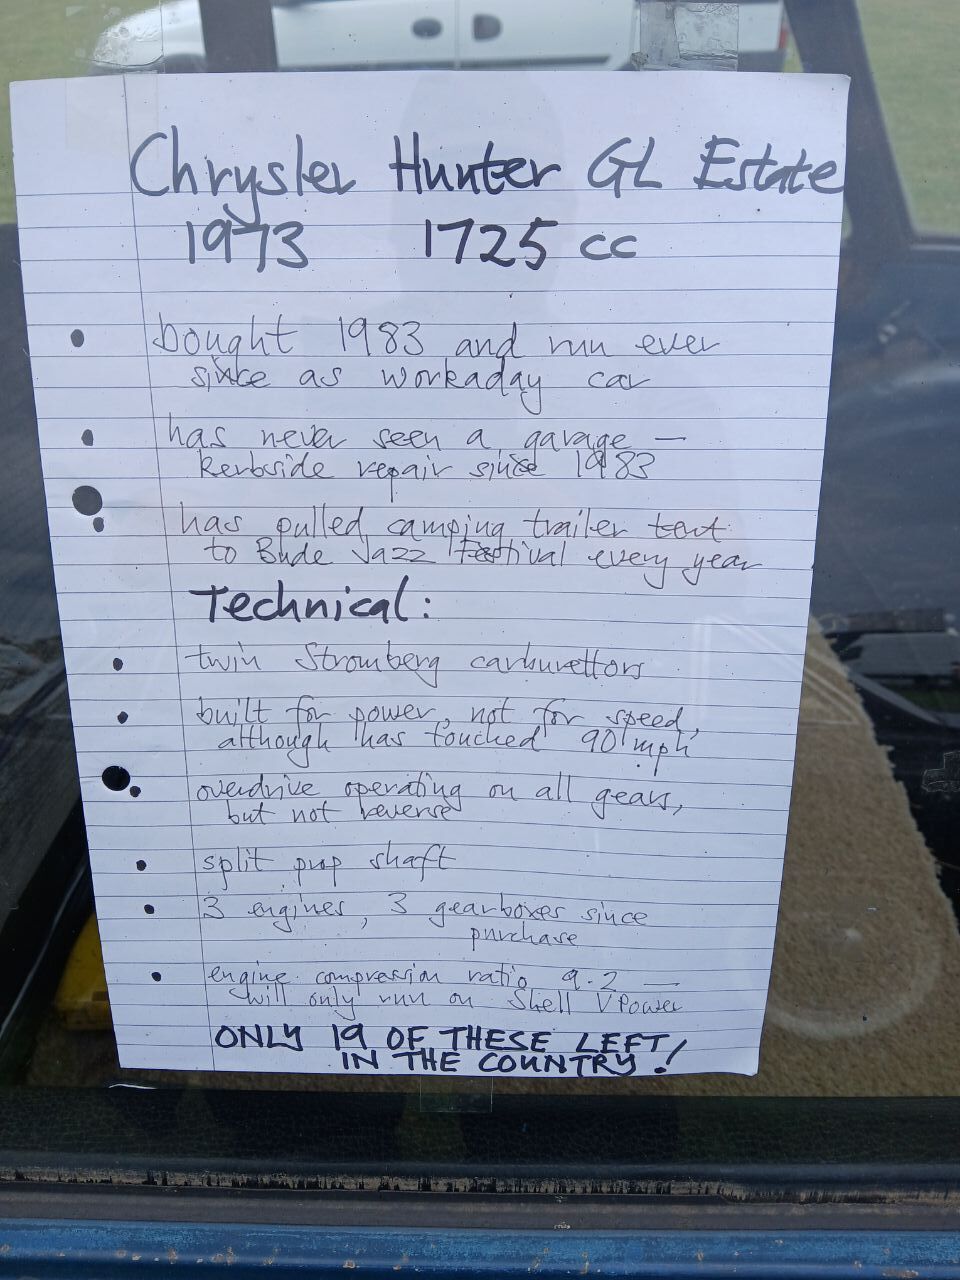 Chrysler Hunter GL Estate
1973 1725 cc
• bought 1983 and run ever
since as workaday car
• has never seen a garage —
kerbside repair since 1983
• has pulled camping trailer tent
to Bude Jazz Festival every year
Technical:
• twin Stromberg carburettors
• built for power, not for speed,
although has touched 90 mph
• overdrive operating on all gears,
but not reverse
• split prop shaft
• 3 engines, 3 gearboxes since
purchase
• engine compression ratio 9.2 —
will only run on Shell VPower
ONLY 19 OF THESE LEFT
IN THE COUNTRY!